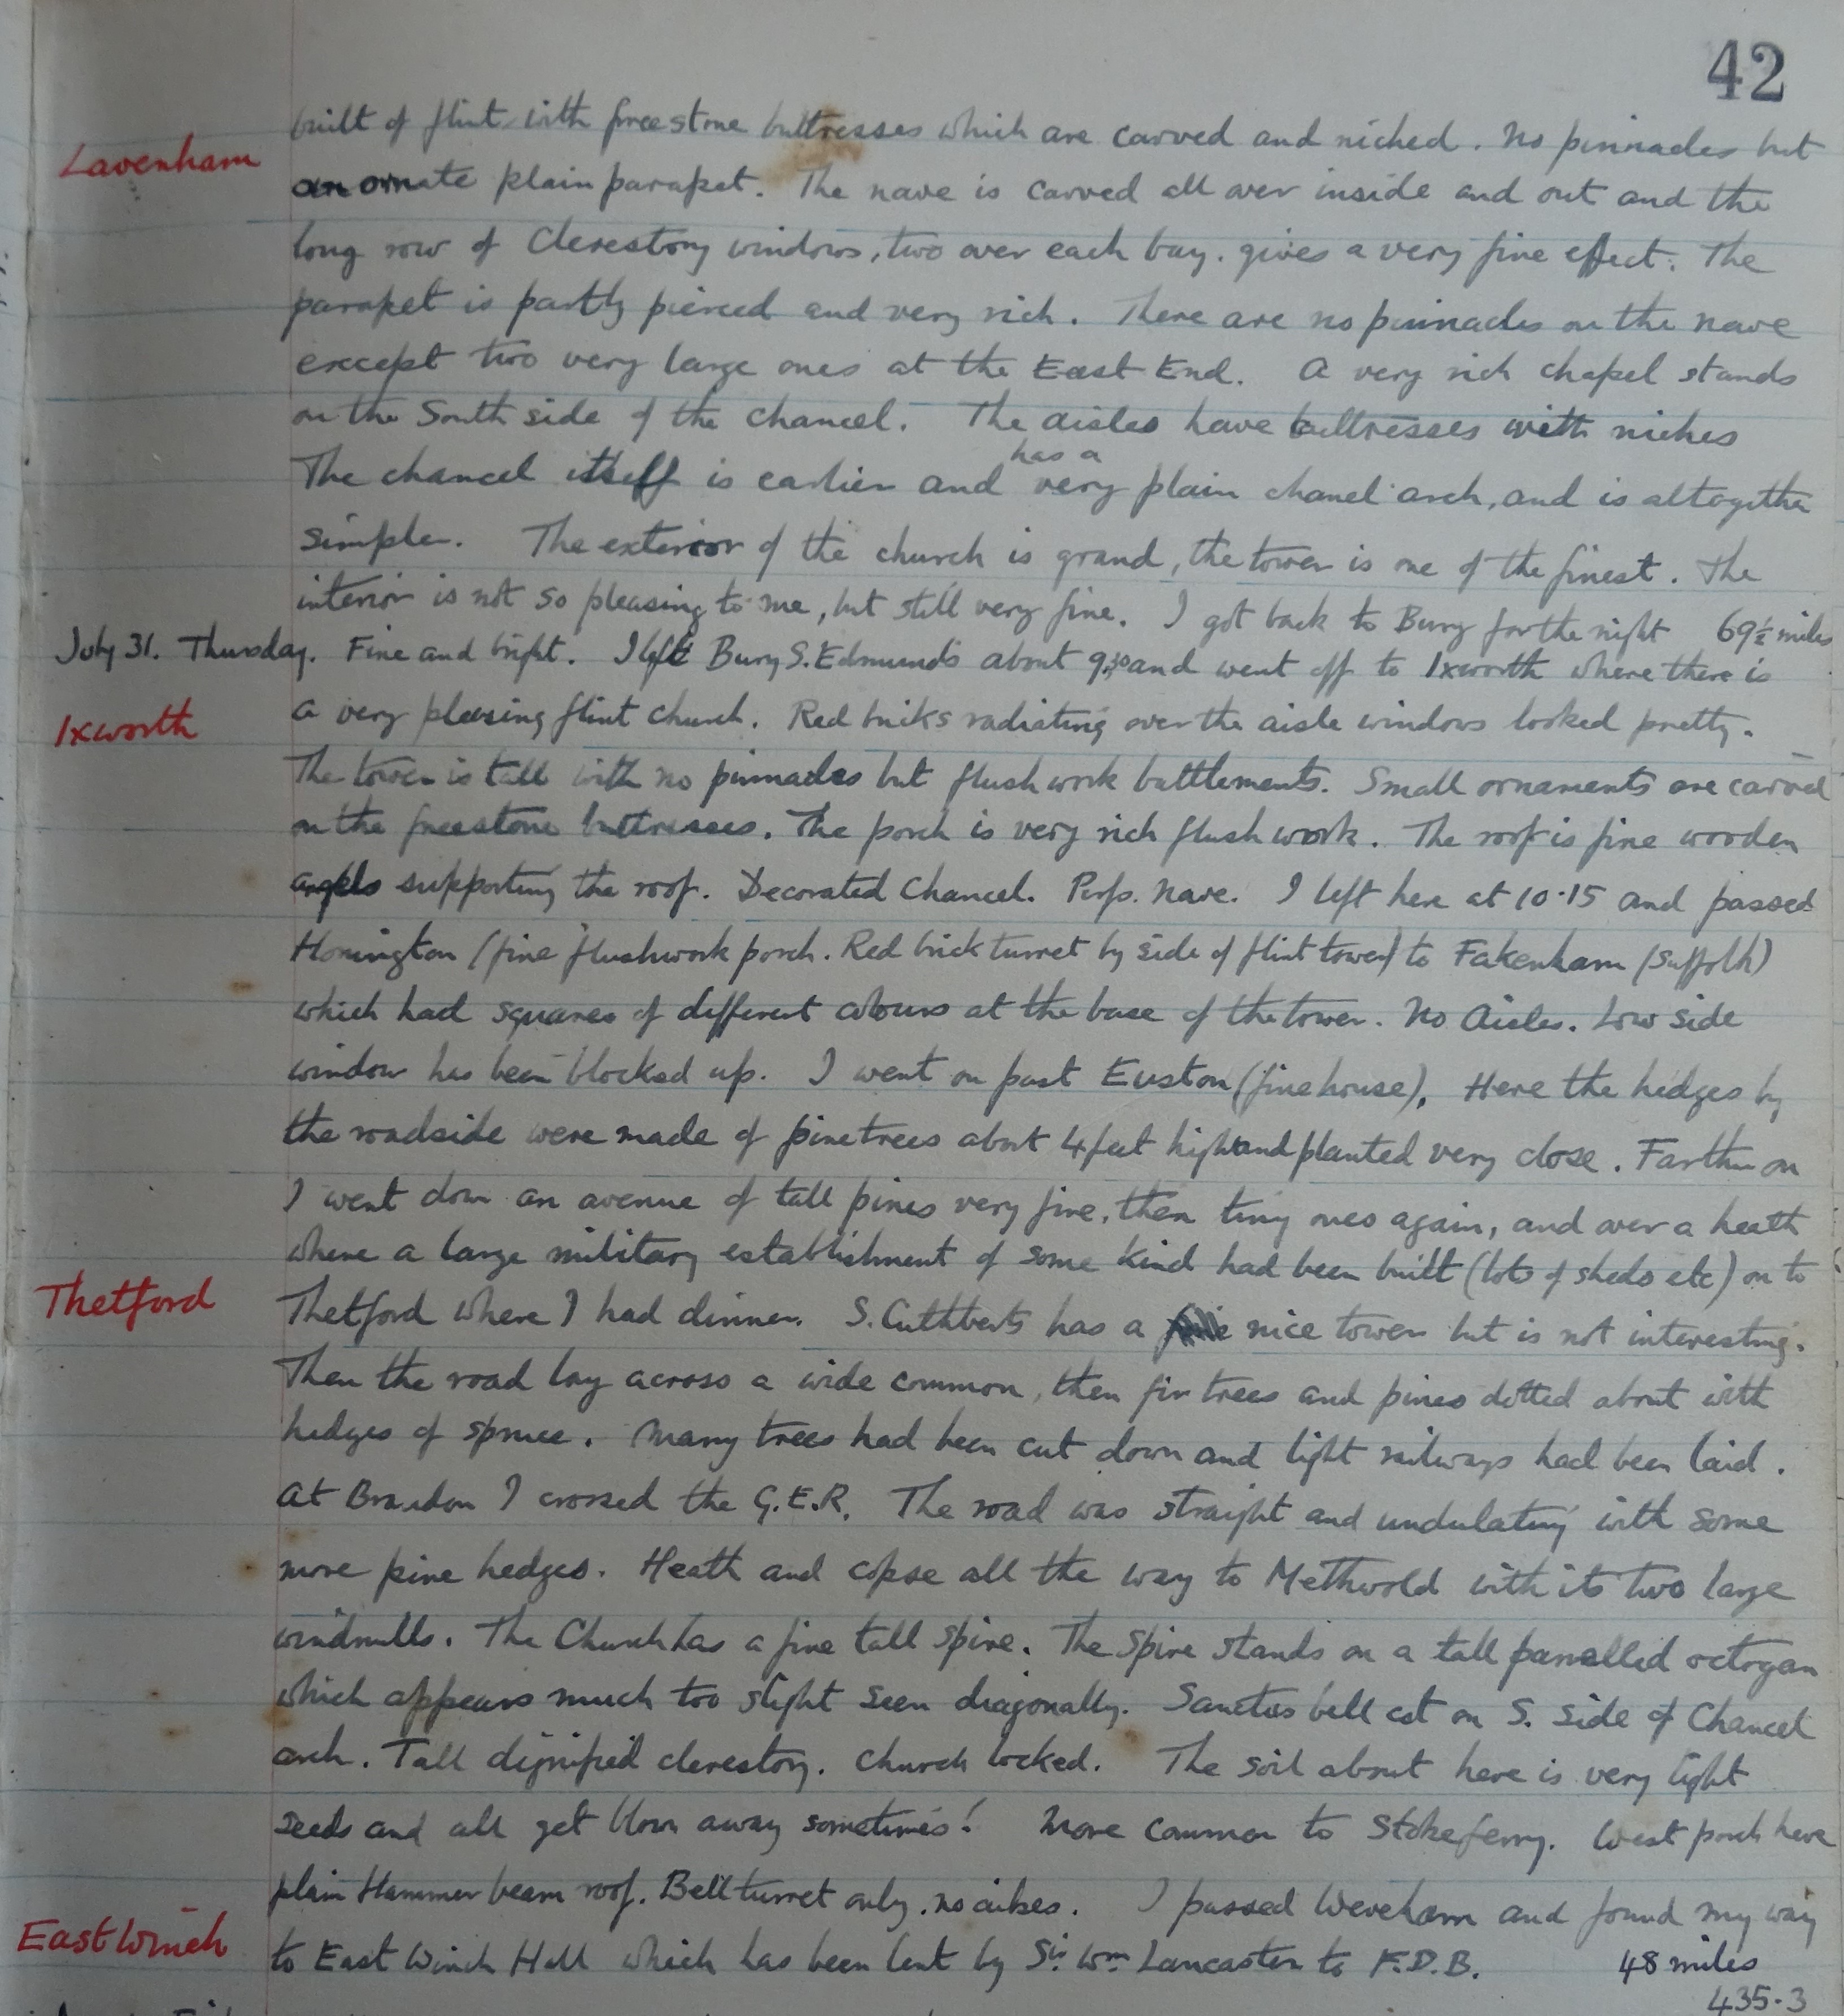 42
Lavenham
built of flint with freestone buttresses which are carved and niched. No pinnacles but
an ornate plain parapet. The nave is carved all over inside and out and the
long row of Clerestory windows, two over each bay. gives a very fine effect. The
parapet is partly pierced and very rich. There are no pinnacles on the nave
except two very large ones at the East End. A very rich chapel stands
on the South side of the chancel. The aisles have buttresses with niches
has a
The chancel itself is earlier and very plain chanel arch, and is altogether
simpler. The exterior of the church is grand, the tower is one of the finest. The
interior is not so pleasing to me, but still very fine. I got back to Bury for the night 69½ miles
July 31. Thursday. Fine and bright. I left Bury S. Edmunds about 9.30 and went off to Ixworth where there is
Ixworth
a very pleasing flint church. Red bricks radiating over the aisle windows looked pretty.
The tower is tall with no pinnacles but flushwork battlements. Small ornaments are carved
on the freestone buttresses. The porch is very rich flush work. The roof is fine wooden
angels supporting the roof. Decorated Chancel. Perp. Nave. I left here at 10.15 and passed
Honington (fine flushwork porch. Red brick turret by side of flint tower) to Fakenham (Suffolk)
which had squares of different colours at the base of the tower. No Aisles. Low side
window has been blocked up. I went on past Euston (fine house). Here the hedges by
the roadside were made of pinetrees about 4 feet high and planted very close. Farther on
I went down an avenue of tall pines very fine, then tiny ones again, and over a heath
where a large military establishment of some kind had been built (lots of sheds etc) on to
Thetford
Thetford where I had dinner. S. Cuthberts has a nice tower but is not interesting.
Then the road lay across a wide common, then fir trees and pines dotted about with
hedges of spruce. Many trees had been cut down and light railways had been laid.
At Brandon I crossed the G.E.R. The road was straight and undulating with some
more pine hedges. Heath and copse all the way to Methwold with its two large
windmills. The Church has a fine tall spire. The spire stands on a tall panelled octogan
which appears much too slight seen diagonally. Sanctus bell cot on S. side of Chancel
arch. Tall dignified clerestory. Church locked. The soil about here is very light
seeds and all get blown away sometimes! More common to Stokeferry. West porch here
plain Hammer beam roof. Bell turret only. no aisles. I passed Wereham and found my way
East Winch
to East Winch Hall which has been lent by Sir Wm Lancaster to F.D.B. 48 miles
435.3